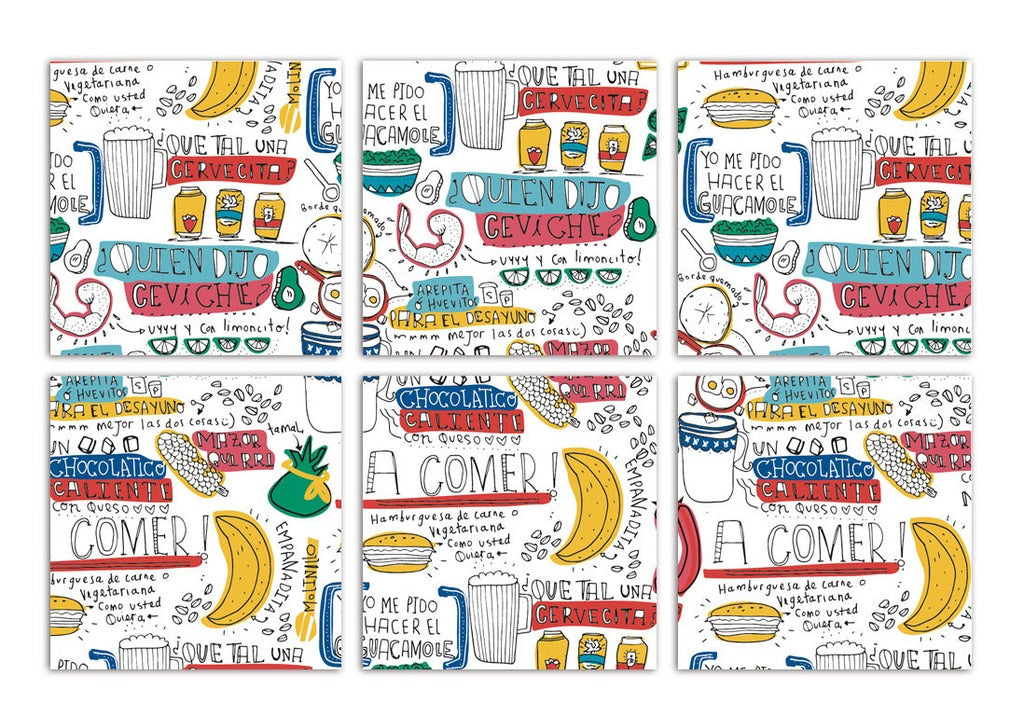 guesa de carne o
Vegetariana
Como usted
Quiera
ANADITA
MOLINI
YO
HA
GUAC
PIDO
ER EL
MOLE
¿QUE TAL UNA
CERVECITA?
Borde quemado
¿QUIEN DIJO
CEVICHE?
uyyy y con limoncito!
AREPITA
ME PIDO
ACER EL
UACAMOLE
¿QUE TAL UNA
CERVECITA?
quemado
¿QUIEN DIJO
CEVICHE?
uyyy y con limoncito!
AREPITA
O HUEVITOS
PARA EL DESAYUNO
mmmm mejor las dos cosas :)
MAZOR
Hamburguesa de carne o
Vegetariana
Como usted
Quiera
¿QUE TAL UNA
CERVECITA
YO ME PIDO
HACER EL
GUACAMOLE
Borde quemado
¿QUIEN DIJO
CEVICHE?
uyyy y con limonc
AREPITA
AREPITA
O HUEVITOS
S P
PARA EL DESAYUNO
mmm mejor las dos cosas :)
UN
CHOCOLATICO
CALIENTE
con queso
MAZOR
QUIRRI
tamal
COMER!
EMPANADITA
MOLINI
burguesa de carne o
Vegetariana
Como usted
Quiera
PIDO
¿QUE TAL UN
YO
HA
GUAC
UN
CHOCOLATICO
CALIENTE
con Queso
MAZOR
QUIRRI
A COMER!
EMPANADITA
Hamburguesa de carne o
Vegetariana
Como usted
Quiera
YO ME PIDO
HACER EL
GUACAMOLE
¿QUE TAL UNA
CERVECITA?
AREPITA
O HUEVITOS
S P
PARA EL DESAYUNO
mmmm mejor las dos cosas :)
UN
CHOCOLATICO
CALIENTE
con Queso
MAZOR
QUIRRI
A COMER!
Hamburguesa de carne o
Vegetariana
Como usted
Quiera
YO ME PIDO
¿QUE TAL UNA